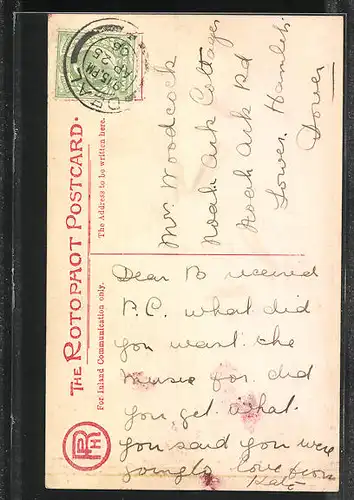 THE ROTOPHOT POSTCARD.
For Inland Communication only.
The Address to be written here.
DEAL
9.15 PM
25
06
Mrs Woodcock
Noah Ark Cottages
Noah Ark Rd
Lower Hamlets
Dover
Dear B recieved
P.C. what did
you want the
music for. did
you get what
you said you were
going to love from
Kate
RPH